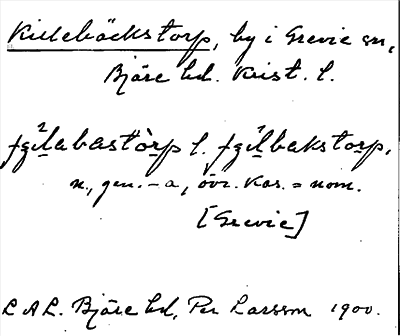 Killebäckstorp, by i Grevie sn,
Bjäre hd. Krist. l.
fzìlabastòrp l. fzìlbakstorp,
n., gen. -a, övr. kas. = nom.
[Grevie]
L A L. Bjäre hd, Per Larsson 1900.